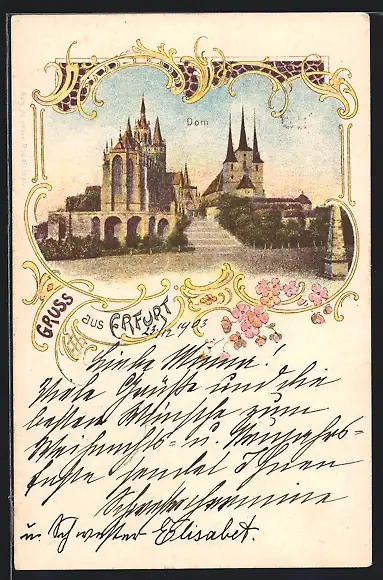 Dom
GRUSS
aus ERFURT
23/12 1903
Liebe Mama!
Viele Grüße und die
besten Wünsche zum
Weihnachts- u. Neujahrs-
feste sendet Ihnen
u. Schwester Elisabet.